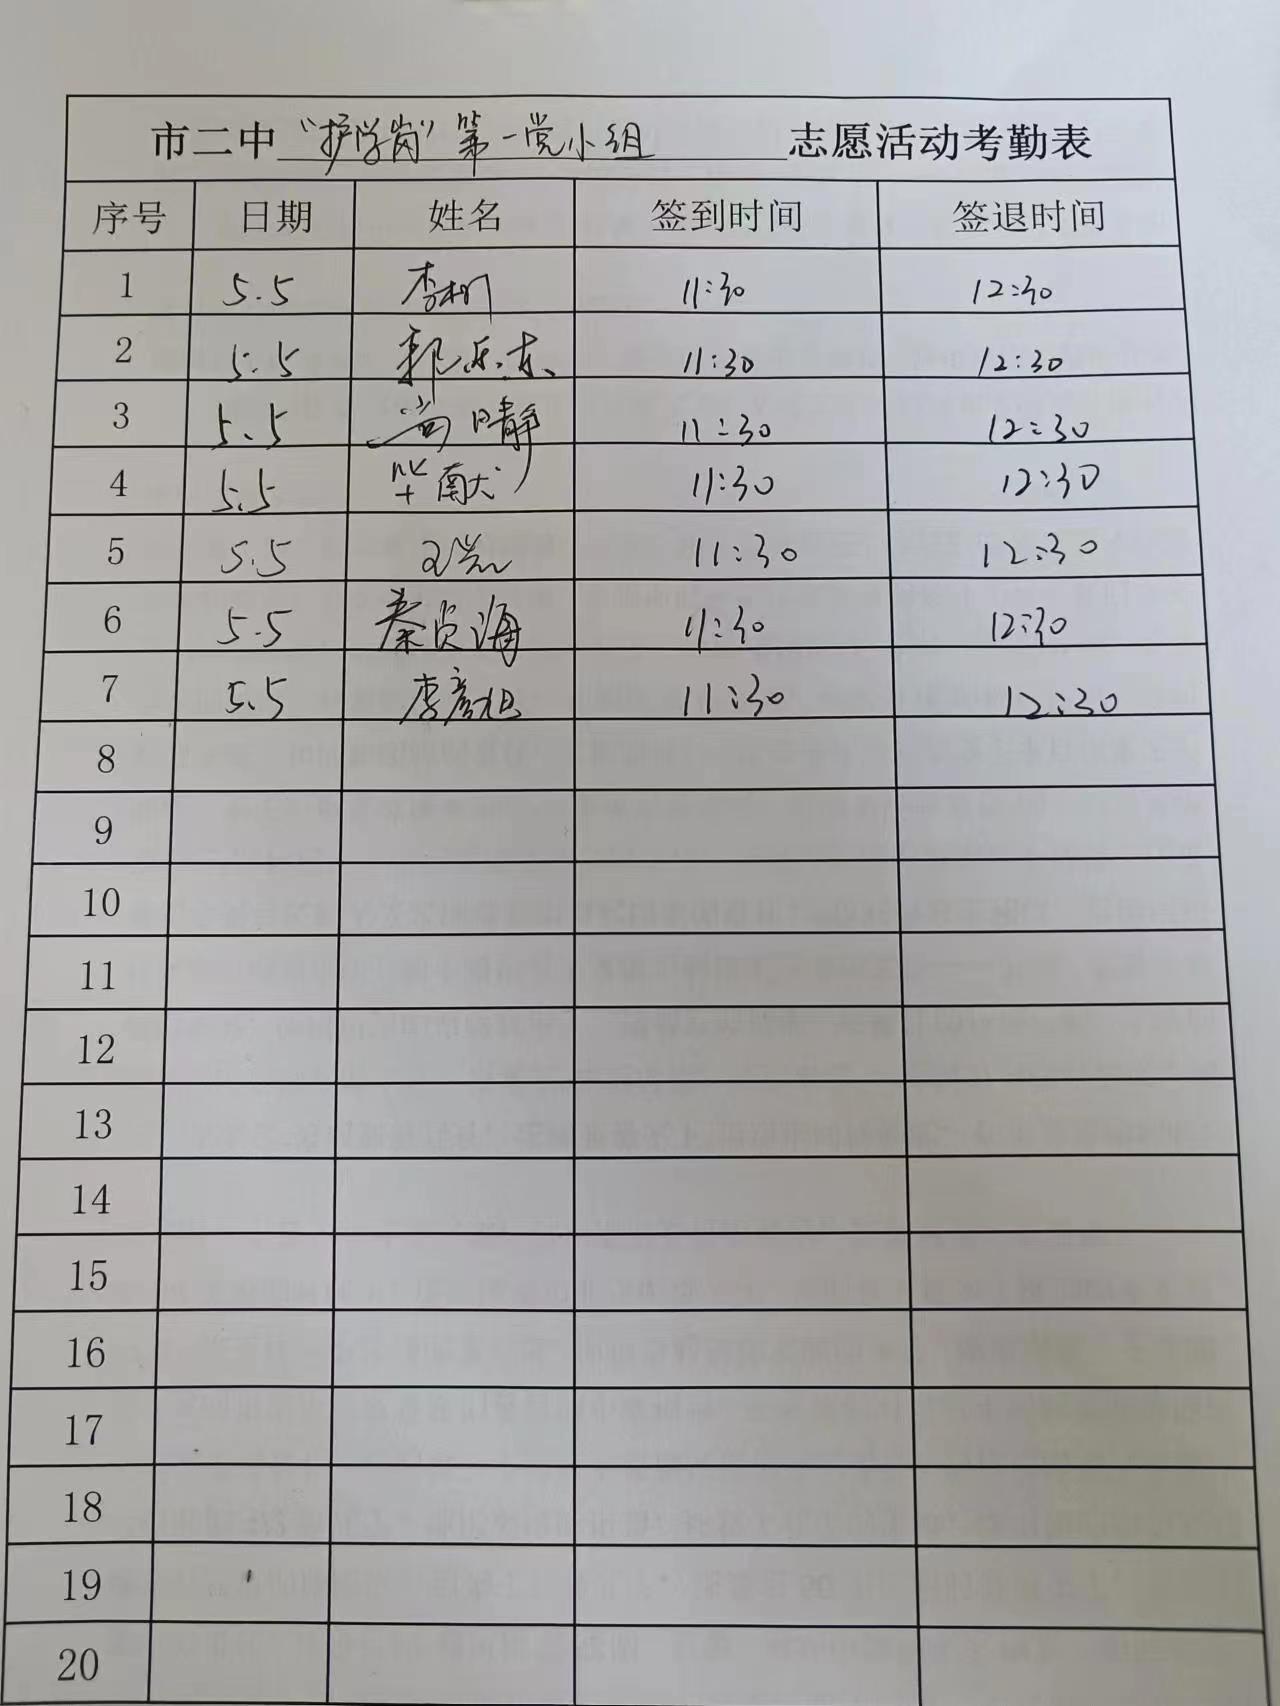 市二中“护学岗”第一党小组志愿活动考勤表
序号 日期 姓名 签到时间 签退时间
1 5.5 李 11:30 12:30
2 5.5 郭乐东 11:30 12:30
3 5.5 尚晴静 11:30 12:30
4 5.5 毕献 11:30 12:30
5 5.5 11:30 12:30
6 5.5 秦贞海 11:30 12:30
7 5.5 李彦祖 11:30 12:30
8
9
10
11
12
13
14
15
16
17
18
19
20